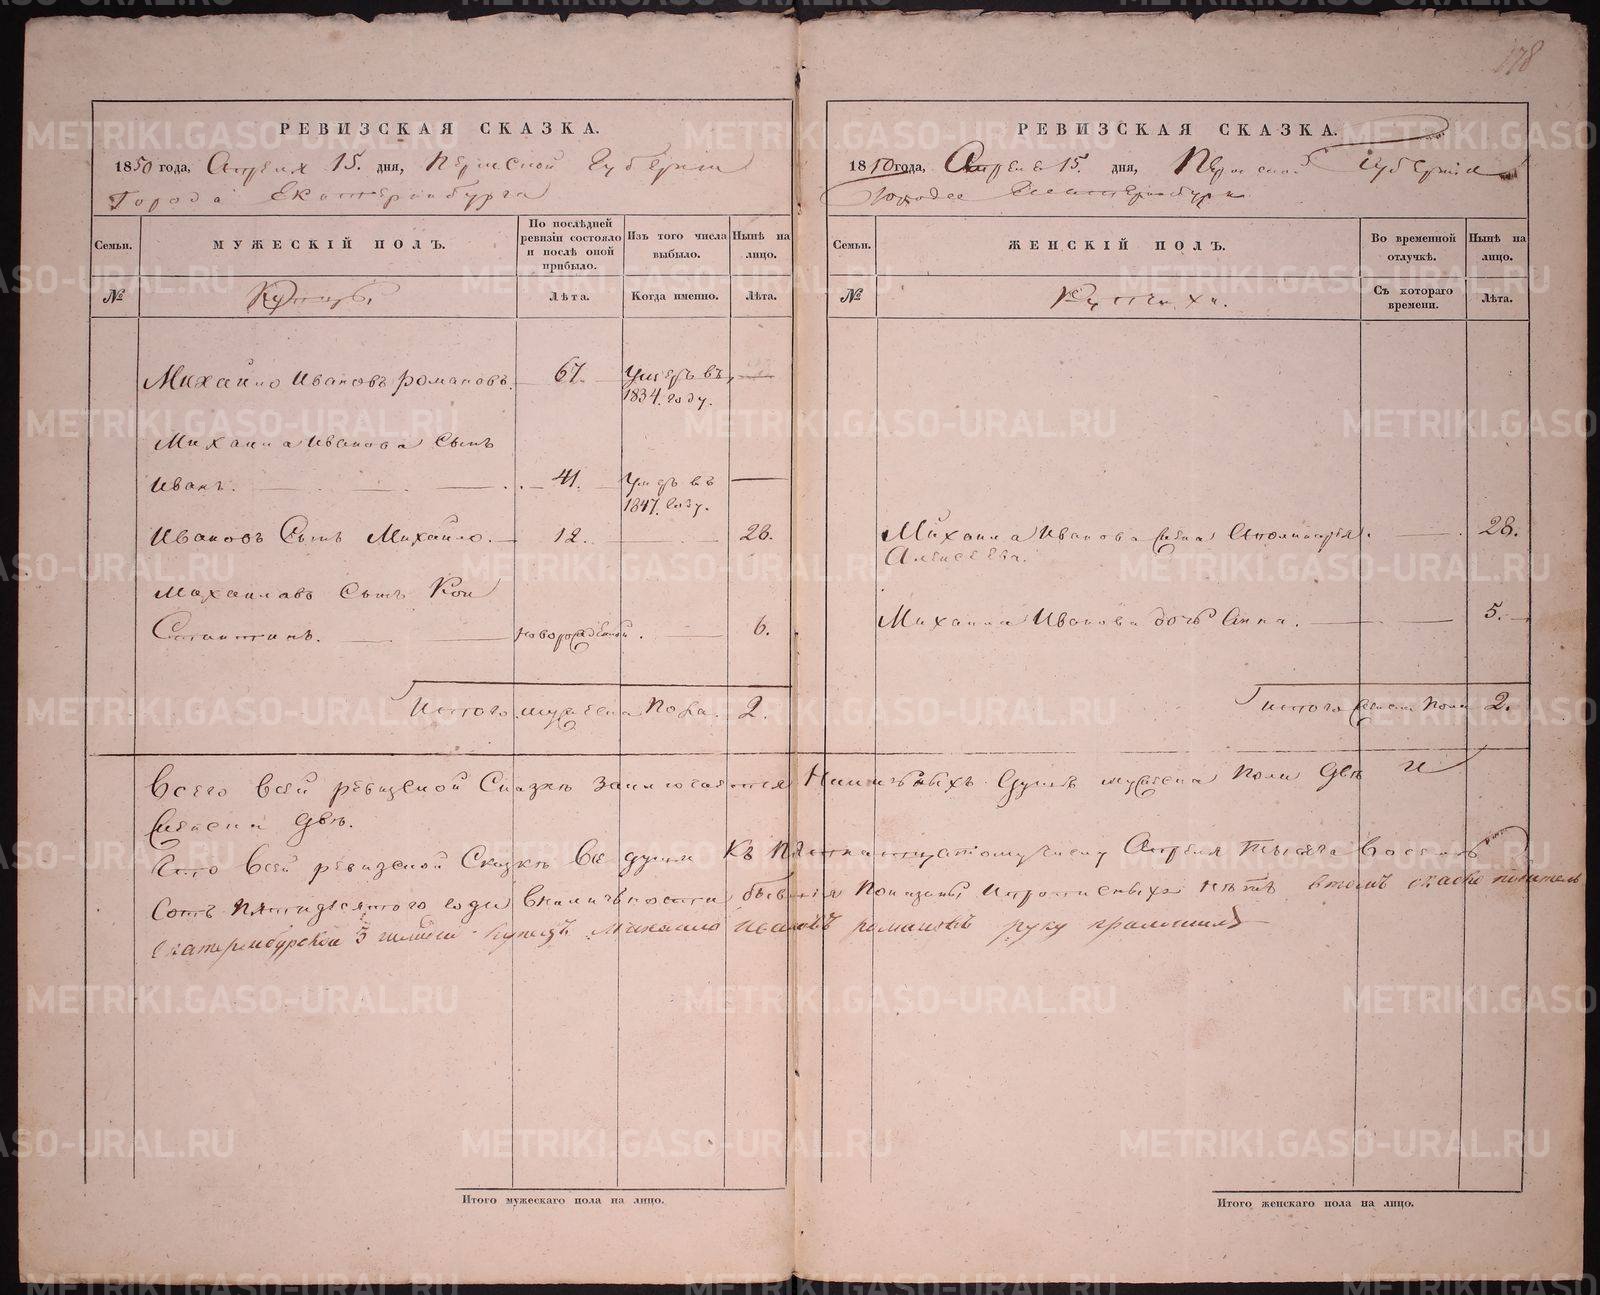 178
РЕВИЗСКАЯ СКАЗКА.
1850 года, Апреля 15. дня, Пермской Губернии
Города Екатеринбурга
Семьи.
МУЖЕСКІЙ ПОЛЪ.
По послѣдней ревизіи состояло и послѣ оной прибыло.
Изъ того числа выбыло.
Нынѣ на лицо.
№
Купцы,
Лѣта.
Когда именно.
Лѣта.
Михайло Ивановъ Романовъ. 67. Умеръ въ —
1834. году.
Михаила Иванова Сынъ
Иванъ. 41. Умеръ въ —
1847. году.
Ивановъ Сынъ Михайло. 12. 28.
Михаиловъ Сынъ Кон
Стантинъ. новорожденной. 6.
Итого мужеска пола. 2.
РЕВИЗСКАЯ СКАЗКА.
1850 года, Апреля 15. дня, Пермской Губернии
города Екатеринбурга
Семьи.
ЖЕНСКІЙ ПОЛЪ.
Во временной отлучкѣ.
Нынѣ на лицо.
№
Купчихи.
Съ котораго времени.
Лѣта.
Михаила Иванова жена Аполинарья 28.
Алексеева.
Михаила Иванова дочь Анна. 5.
Итого женска пола 2.
Всего всей ревизской Сказке заключается Наличныхъ душъ мужеска пола две и
женска две.
Что всей ревизской Сказке все души къ пятнатцатому числу Апреля тысяча восемь
сотъ пятидесятого года вналичности бывшия показаны и прописныхъ нетъ втомъ скаске податель
екатеринбурской 3 гильдии купецъ Михайло Ивановъ романовъ руку приложилъ
Итого мужескаго пола на лицо.
Итого женскаго пола на лицо.
METRIKI.GASO-URAL.RU